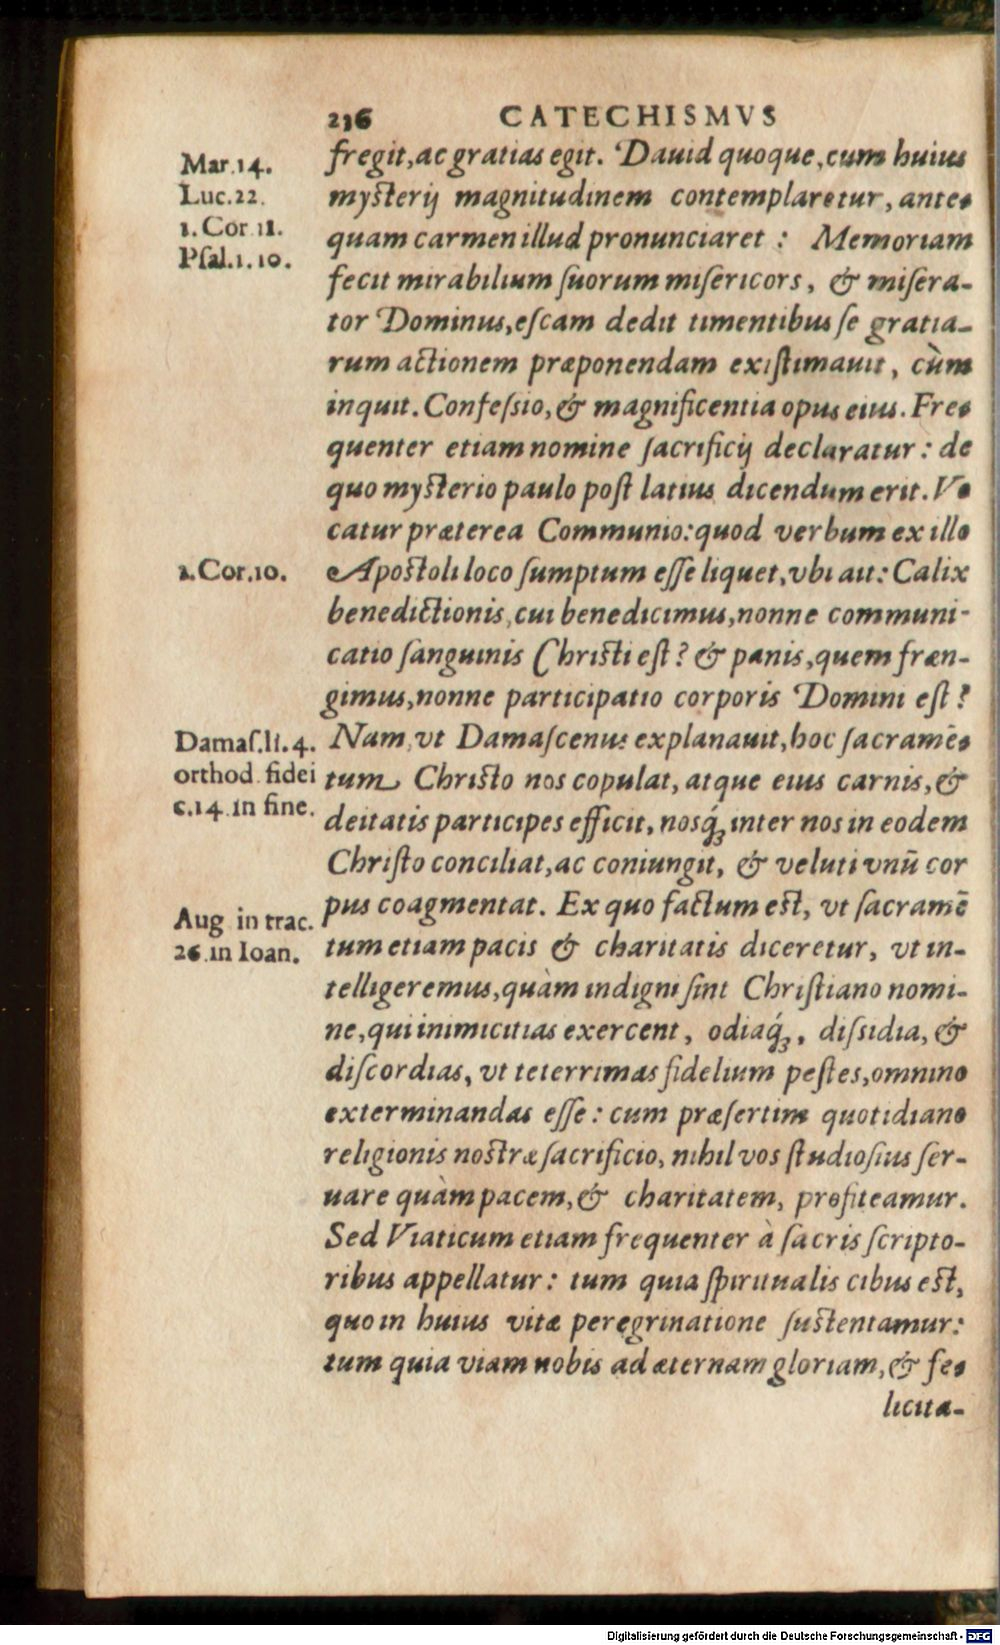 236 CATECHISMVS
Mar.14.
Luc.22.
1.Cor.11.
Psal.1.10.
fregit,ac gratias egit. Dauid quoque,cum huius
mysterij magnitudinem contemplaretur, ante-
quam carmen illud pronunciaret : Memoriam
fecit mirabilium ſuorum miſericors, & miſera-
tor Dominus,eſcam dedit timentibus ſe gratia-
rum actionem præponendam exiſtimauit, cùm
inquit. Confeſsio,& magnificentia opus eius. Fre-
quenter etiam nomine ſacrificij declaratur: de
quo mysterio paulo poſt latius dicendum erit. Vo
catur præterea Communio:quod verbum ex illo
1.Cor.10.
Apostoli loco ſumptum eſſe liquet,vbi ait: Calix
benedictionis,cui benedicimus,nonne communi-
catio ſanguinis Christi eſt? & panis,quem fræn-
gimus,nonne participatio corporis Domini eſt?
Damaſ.li.4.
orthod.fidei
c.14.in fine.
Nam,vt Damaſcenus explanauit,hoc ſacramẽ-
tum Christo nos copulat, atque eius carnis,&
deitatis participes efficit, nosq́; inter nos in eodem
Chriſto conciliat,ac coniungit, & veluti vnũ cor
Aug. in trac.
26.in Ioan.
pus coagmentat. Ex quo factum est, vt ſacramẽ
tum etiam pacis & charitatis diceretur, vt in-
telligeremus,quàm indigni ſint Chriſtiano nomi-
ne,qui inimicitias exercent, odiaq́;, diſsidia, &
diſcordias, vt teterrimas fidelium peſtes,omnino
exterminandas eſſe: cum præſertim quotidiano
religionis nostræ ſacrificio, nihil vos ſtudioſius ſer-
uare quàm pacem,& charitatem, profiteamur.
Sed Viaticum etiam frequenter à ſacris ſcripto-
ribus appellatur: tum quia ſpiritualis cibus est,
quo in huius vitæ peregrinatione ſustentamur:
tum quia viam nobis ad æternam gloriam,& fe-
licita-
Digitalisierung gefördert durch die Deutsche Forschungsgemeinschaft - DFG